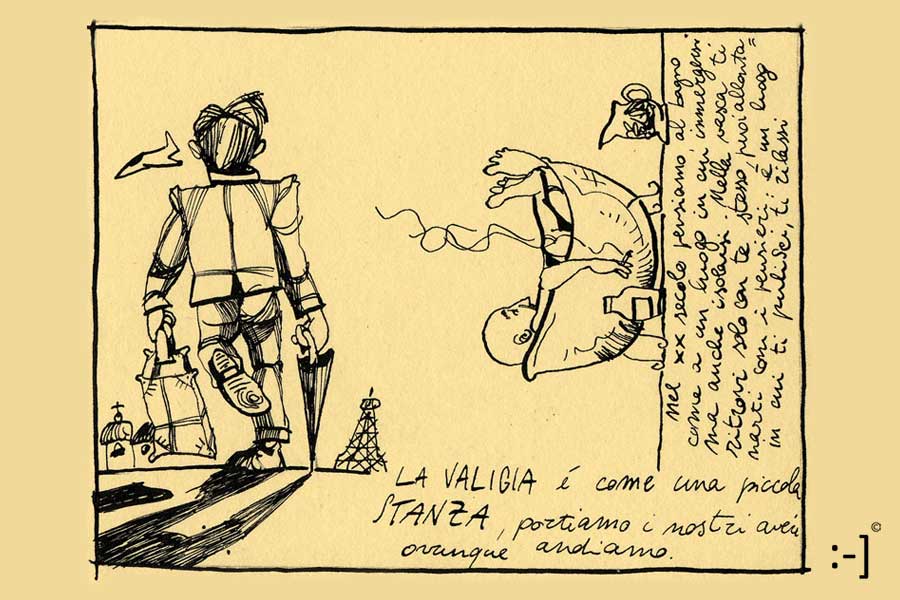 LA VALIGIA é come una piccola
STANZA, portiamo i nostri averi
ovunque andiamo.
Nel xx secolo pensiamo al bagno
come a un luogo in cui immergersi
ma anche isolarsi. Nella vasca ti
ritrovi solo con te stesso, puoi allonta=
narti con i pensieri: é un luogo
in cui ti pulisci, ti rilassi
:-] ©